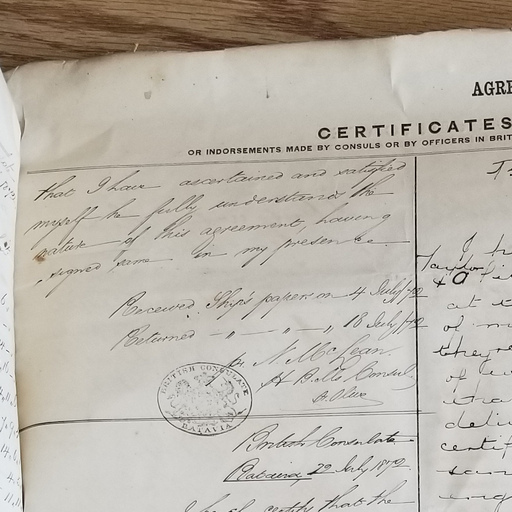 AGRE
CERTIFICATES
OR INDORSEMENTS MADE BY CONSULS OR BY OFFICERS IN BRIT
that I have ascertained and satisfied
myself he fully understands the
nature of this agreement, having
signed same in my presence.
Received Ship's papers on 4 July /72
Returned - " - " - " 18 July /72
N. McLean
H B Ms Consul
BRITISH CONSULATE
BATAVIA
British Consulate
Batavia 22 July 1872
certify that the
I h
Taylor
at t
of m
they
of
deli
certif
sam